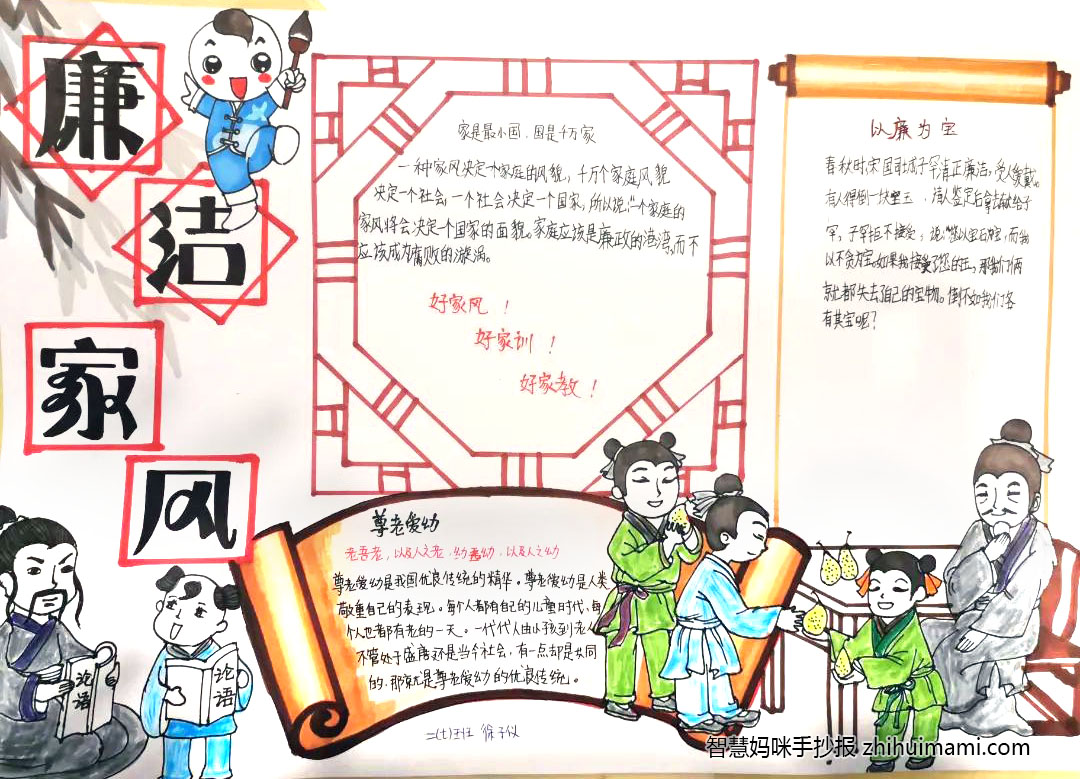 廉
洁
家
风
家是最小国，国是千万家
一种家风决定一个家庭的风貌，千万个家庭风貌
决定一个社会，一个社会决定一个国家，所以说，“一个家庭的
家风将会决定一个国家的面貌。家庭应该是廉政的港湾，而不
应该成为腐败的漩涡。
好家风！
好家训！
好家教！
以廉为宝
春秋时，宋国司城子罕清正廉洁，受人爱戴。
有人得倒一块宝玉，请人鉴定后拿去献给子
罕，子罕拒不接受，说：“您以宝石为宝，而我
以不贪为宝。如果我接受了您的玉，那我们俩
就都失去了自己的宝物。倒不如我们各
有其宝呢？
尊老爱幼
老吾老，以及人之老，幼吾幼，以及人之幼
尊老爱幼是我国优良传统的精华。尊老爱幼是人类
敬重自己的表现。每个人都有自己的儿童时代，每
个人也都有老的一天。一代代人由小孩到老人
不管处于盛唐还是当今社会，有一点却是共同
的，那就是尊老爱幼的优良传统。
论语
论语
二(七)班 徐子仪
智慧妈咪手抄报 zhihuimami.com